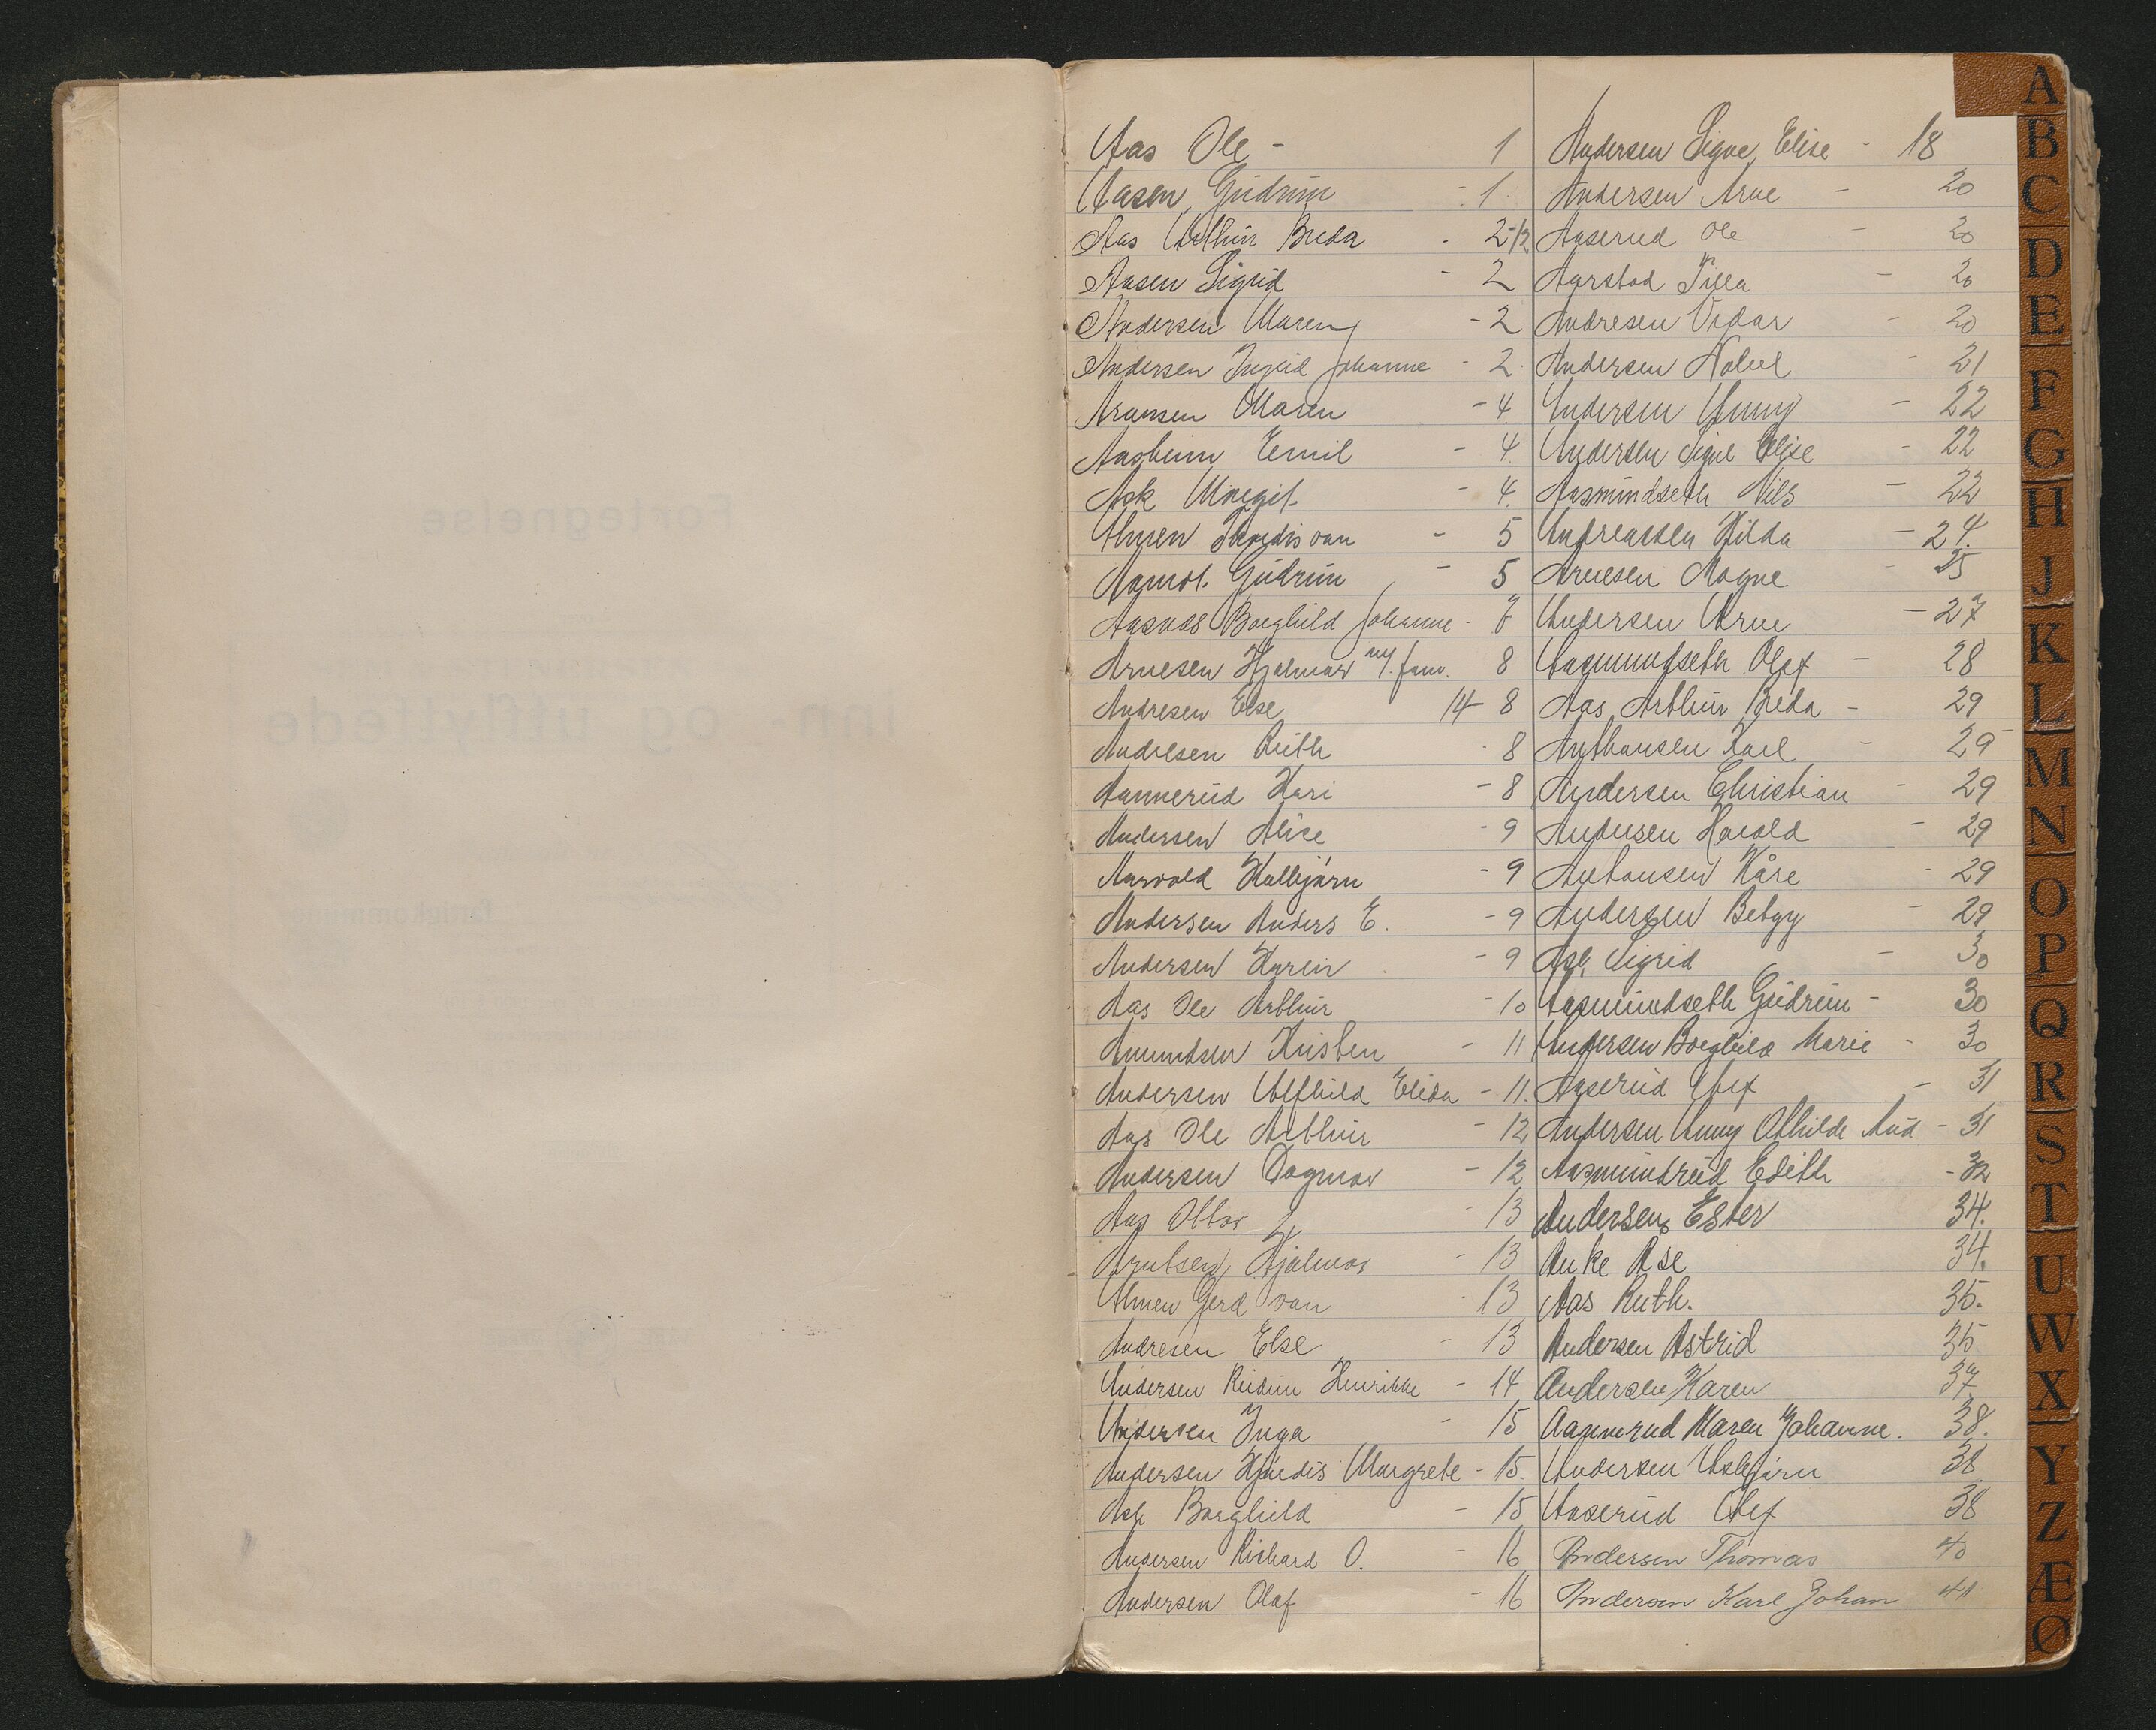 Aas Ole - 1
Aasen, Gudrun - 1
Aas Arthur Breda - 2-12
Aasen Sigrid - 2
Andersen Maren - 2
Andersen Ingrid Johanne - 2
Aronsen Maren - 4
Aasheim Emil - 4
Ask Margit - 4
Almen van - 5
Aamot Gudrun - 5
Aasnæs Borghild Johanne - 7
Arnesen Hjalmar m/ fam. 8
Andresen Else 14 - 8
Andresen Ruth - 8
Aannerud Kari - 8
Andersen Alise - 9
Aarvold - 9
Andersen Anders E. - 9
Andersen Karin - 9
Aas Ole Arthur - 10
Amundsen Kristen - 11
Andersen Alfhild Elida - 11
Aas Ole Arthur - 12
Andersen Dagmar - 12
Aas Ottar - 13
Arntsen, Hjalmar - 13
Almen Gerd van - 13
Andresen Else - 13
Andersen Reidun Henrikke - 14
Andersen Inga - 15
Andersen Hjørdis Margrete - 15
Ask Borghild - 15
Andersen Richard O. - 16
Andersen Olaf - 16
Andersen Signe Elise - 18
Andersen Arne - 20
Aaserud Ole - 20
Aarstad - 20
Andresen Vidar - 20
Andersen - 21
Andersen Anny - 22
Andersen Signe Elise - 22
Aasmundseth Nils - 22
Andreassen Hilda - 24
Arnesen Magne - 25
Andersen Arne - 27
Aasmundseth Olaf - 28
Aas, Arthur Breda - 29
Anthonsen Karl - 29
Andersen Christian - 29
Andersen Harald - 29
Antonsen Kåre - 29
Andersen Betzy - 29
Ask Sigrid - 30
Aasmundseth Gudrun - 30
Andersen Borghild Marie - 30
Aaserud Olef - 31
Andersen Anny Othilde Aud - 31
Aasmundrud Edith - 32
Andersen Ester 34.
Anke Åse 34.
Aas Ruth. 35.
Andersen Astrid 35
Andersen Karen 37
Aannerud Maren Johanne. 38.
Andersen Asbjørn 38
Aaserud Olef 38
Andersen Thomas 40
Andersen Karl Johan 41
A
B
C
D
E
F
G
H
J
K
L
M
N
O
P
Q
R
S
T
U
W
X
Y
Z
Æ
Ø